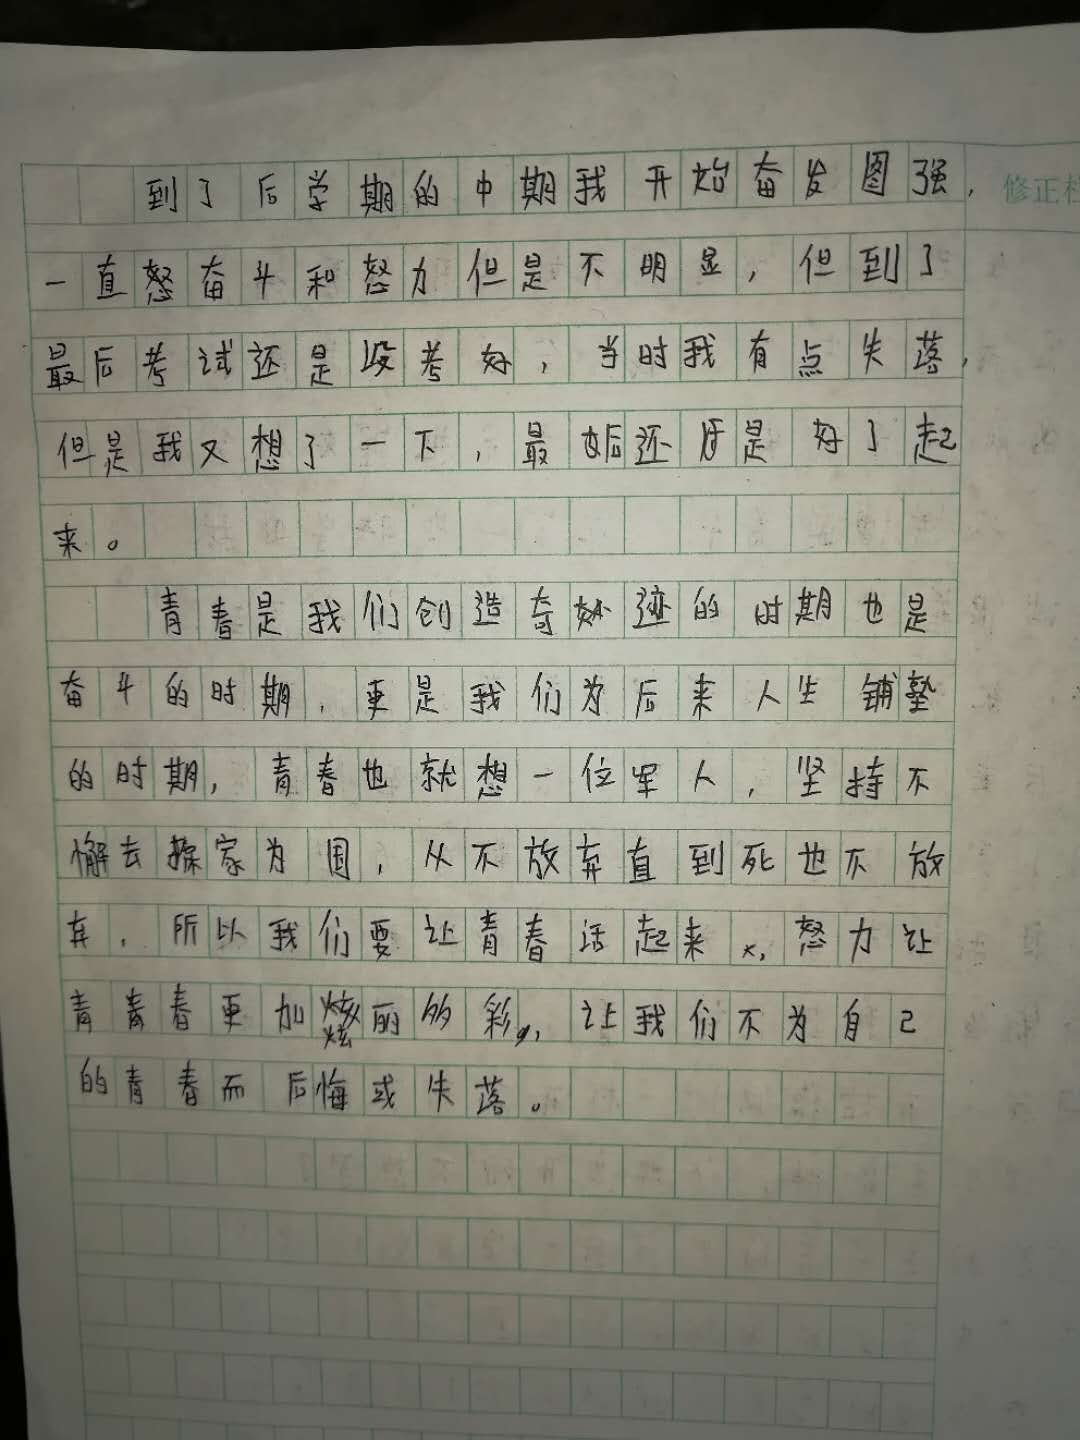 到了后学期的中期我开始奋发图强，
修正栏
一直怒奋斗和怒力但是不明显，但到了
最后考试还是没考好，当时我有点失落，
但是我又想了一下，最后还是好了起
来。
青春是我们创造奇迹的时期也是
奋斗的时期，更是我们为后来人生铺垫
的时期，青春也就想一位军人，坚持不
懈去探家为国，从不放弃直到死也不放
弃，所以我们要让青春活起来，怒力让
青青春更加炫丽的多彩，让我们不为自己
的青春而后悔或失落。